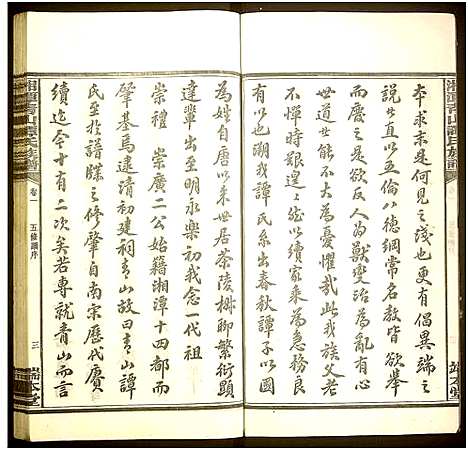 湘潭青山譚氏族譜
本求末是何見之淺也更有倡異端之
說廿直以五倫八德綱常名教皆欲舉
而廢之是欲人為獸變治為亂有心
世道世能不大為憂懼哉此我族父老
不憚時艱以續家乘為急務良
有以也溯我譚氏系出春秋譚子以國
端本堂
為姓自唐以來世居茶陵椕聊繁衍顯
達輩出至明永樂初我念一代祖
崇禮 崇廣二公始籍湘潭十四都而
肇基馬遠清初建祠青山故曰青山譚
氏至於譜牒之修肇自南宋歷代賡
續迄今十有二次矣若專就青山而言
湘潭青山譚氏族譜
卷一
五修譜序
三
端本堂